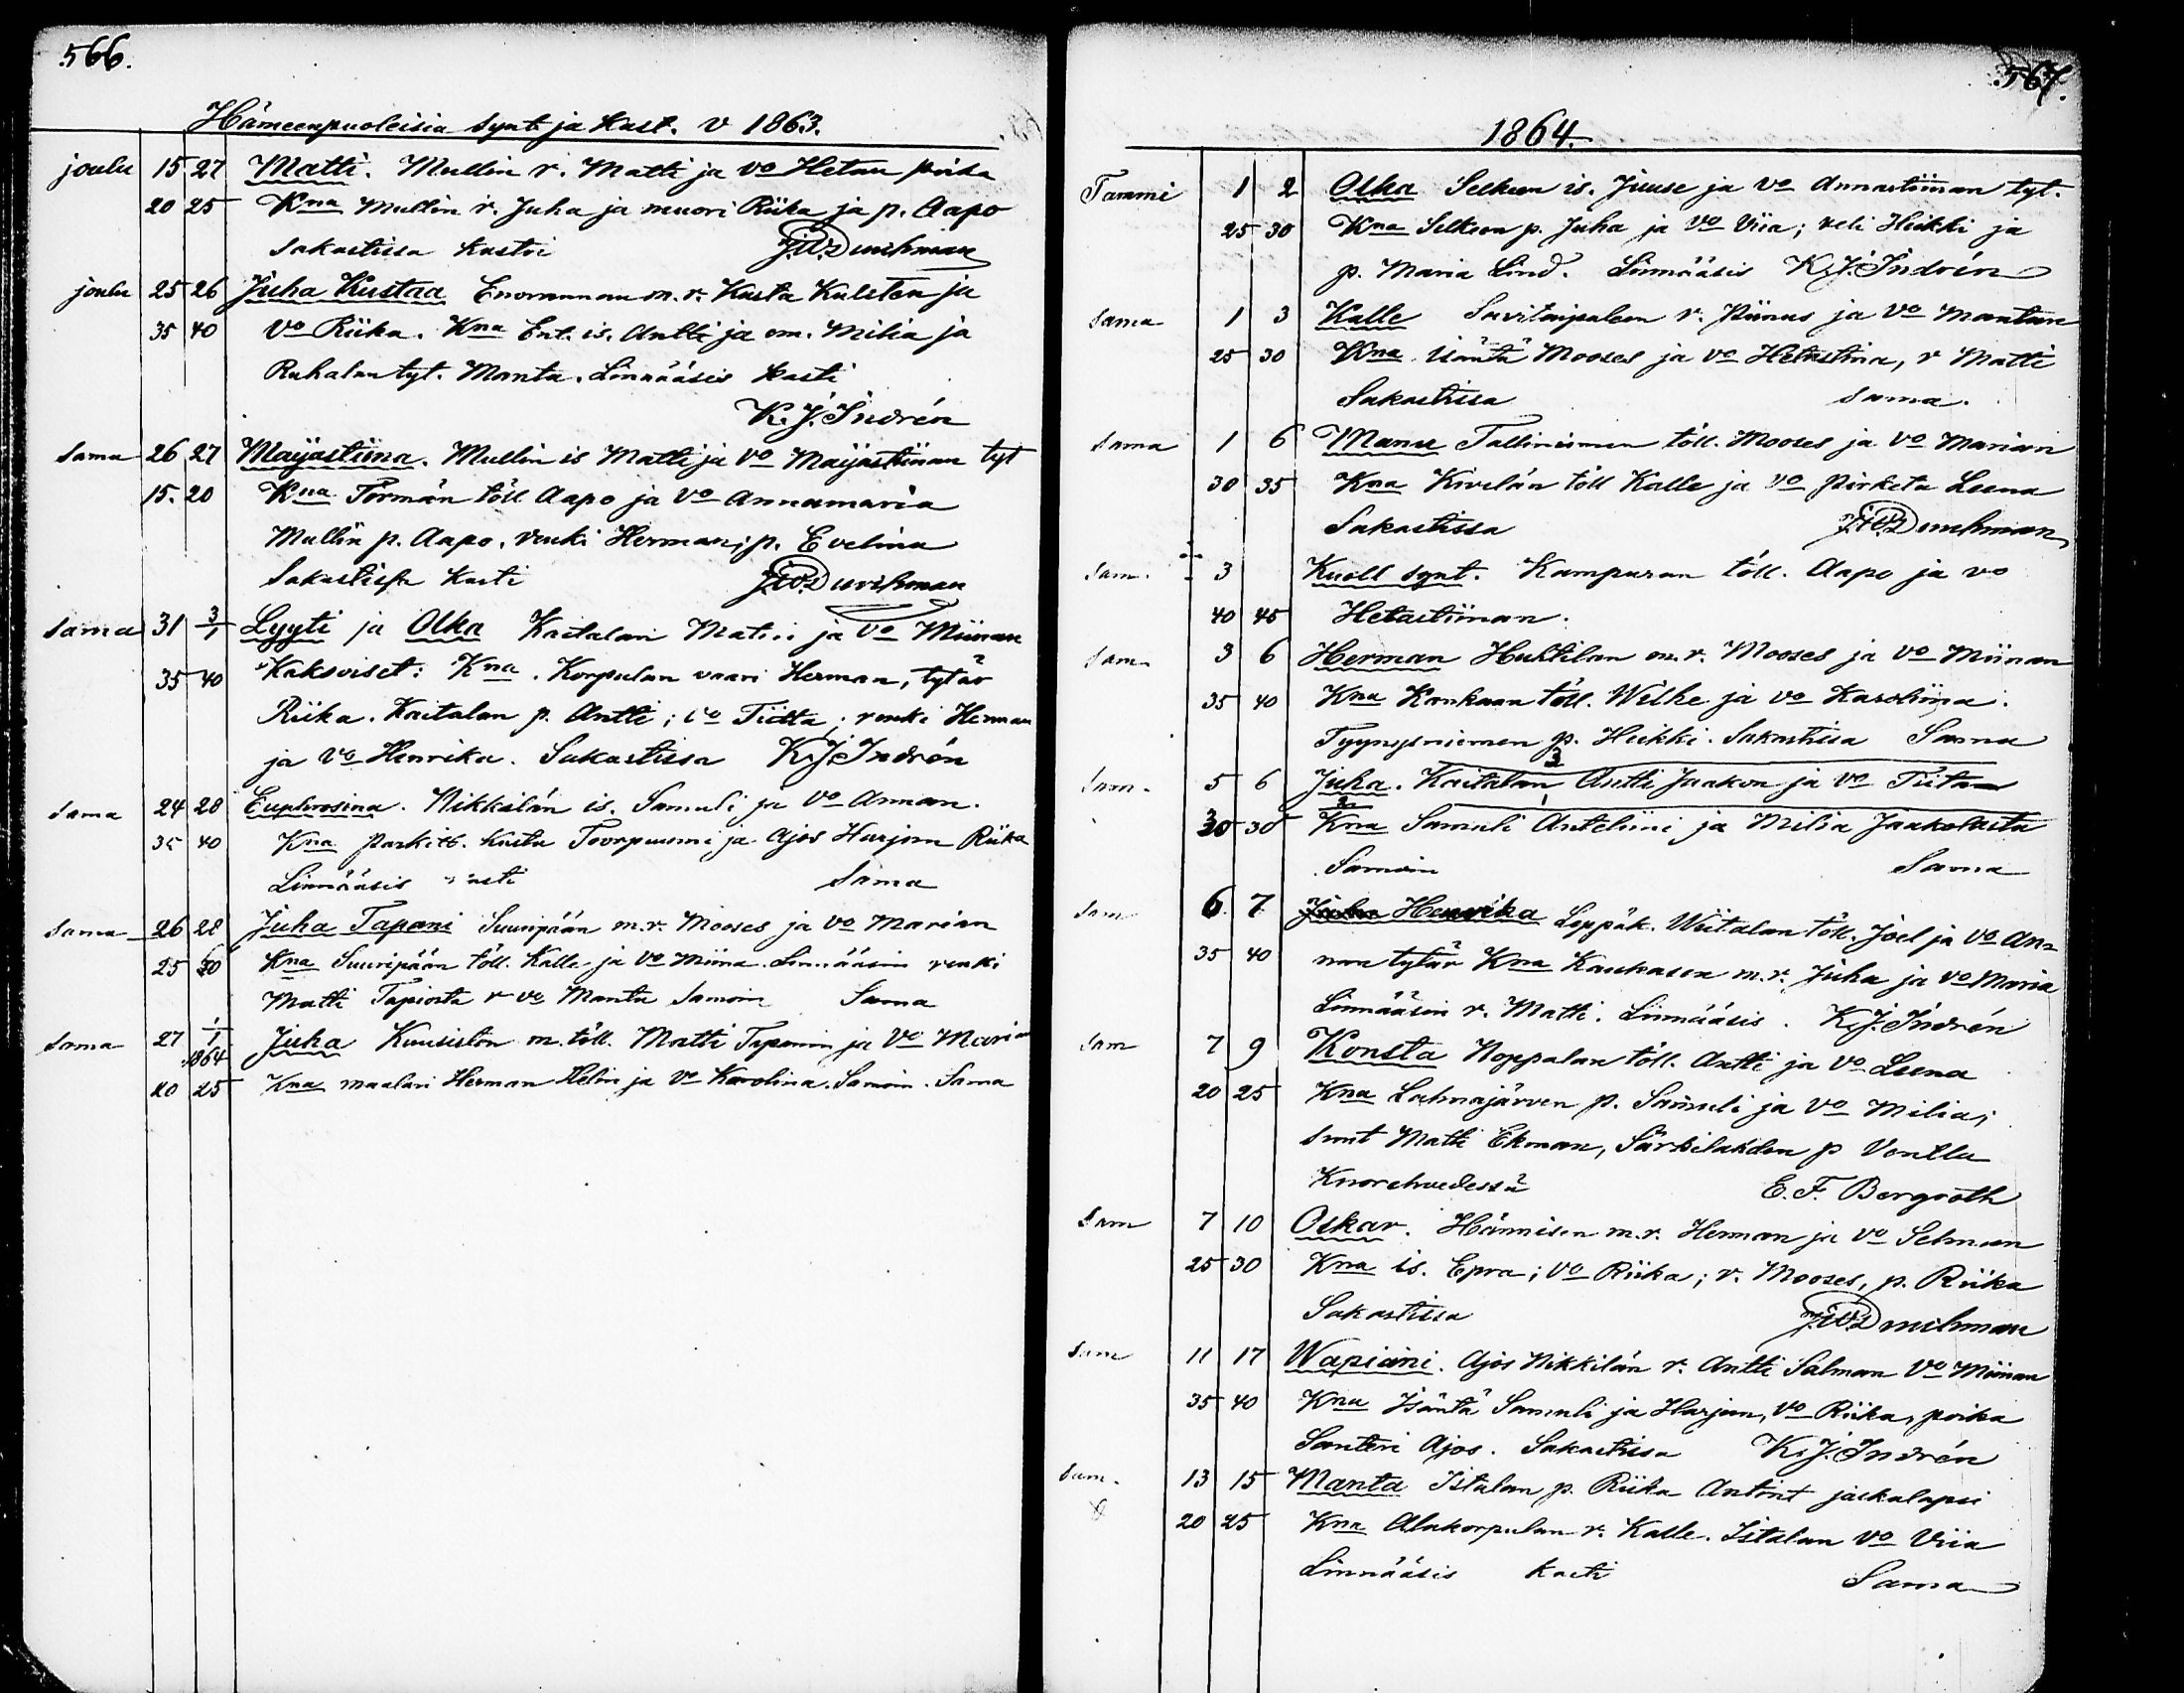 566.
Hämeenpuoleisia synt ja Kast. v 1863.
joulu 15 27 Matti. Mullin r. Matti ja vo Hetan poika
20 25 Kna Mullin r. Juha ja muori Riika ja p. Aapo
Sakastissa Kastoi
joulu 25 26 Juha Kustaa m.r. Kusta Kulsten ja
35 40 vo Riika. Kna Ent. is. Antti ja em. Milia ja
Ruhalan tyt. Manta. Linnääsis Kasti
K.J. Indrén
Sama 26 27 Maijastiina. Mullin is Matti ja vo Maijastiinan tyt
15. 20 Kna Törmän töll Aapo ja vo Annamaria
Mullin p. Aapo, renki Herman; p. Evelina
Sakastissa Kasti
Sama 31 3/1 Lyyti ja Olka Kaitalan Matin ja vo Miinan
35 40 Kaksoiset: Kna. Korpulan vaari Herman, tytär
Riika. Kaitalan p. Antti; vo Tiitta; renki Herman
ja vo Henrika. Sakastissa K.J. Indrén
Sama 24 28 Euphrosina. Nikkilän is. Samuli ja vo Annan.
35 40 Kna Kusta ja Ajos Harjun Riika
Linnääsis Kasti Sama
Sama 26 28 Juha Tapani Suuripään m.r. Mooses ja vo Marian
25 30 Kna Suuripään töll. Kalle ja vo Miina. Linnääsin renki
Matti r vo Manta Samoin Sama
Sama 27 1/1 1864 Juha Kuusiston m. töll. Matti Tapanin ja vo Marian
20 25 Kna maalari Herman Helin ja vo Karolina. Samoin. Sama
567.
1864.
Tammi 1 2 Olka Selkeen is. Juuse ja vo Annastiinan tyt.
25 30 Kna Selkeen p. Juha ja vo Viia; reli Heikki ja
p. Maria Lind. Linnääsis K.J. Indrén
Sama 1 3 Kalle Savitaipaleen r. Piinus ja vo Mantan
25 30 Kna isäntä Mooses ja vo Hetastina, r Matti
Sakastissa Sama.
Sama 1 6 Manu Tallinismen töll. Mooses ja vo Marian
30 35 Kna Kivelän töll Kalle ja vo Pirketa Leena
Sakastissa
Sam. 3 Kuoll synt. Kampuran töll. Aapo ja vo
40 45 Hetastiinan.
Sam. 3 6 Herman Huhtilan m.r. Mooses ja vo Miinan
35 40 Kna Konkaan töll. Wilhe ja vo Karoliina.
Tyynysniemen p. Heikki. Sakastissa Sama
Sam. 5 6 Juha. Kaitalan Antti Jaakon ja vo Tiitan
30 30 Kna Samuli Anteliini ja Milia Jaakolasta
Samoin Sama
Sam 6 7 Juha Henrika Leppäk. Wiitalan töll. Joel ja vo An=
35 40 nan tytär Kna Kaukasen m.r. Juha ja vo Maria
Linnääsin r. Matti. Linnääsis. K.J. Indrén
Sam 7 9 Konsta Noppalan töll. Antti ja vo Leena
20 25 Kna Lahnajärven p. Samuli ja vo Milia;
sunt Matti Ekman, Särkilahden p Vontta
Knorehvedessä E.F. Bergroth
Sam 7 10 Oskar. Hännisen m.r. Herman ja vo Selman
25 30 Kna is. Epra; vo Riika; r. Mooses, p. Riika
Sakastissa
Sam 11 17 Wapiani. Ajos Nikkilän r. Antti Salman vo Miinan
35 40 Kna Isäntä Samuli ja Harjun, vo Riika, poika
Santeri Ajos. Sakastissa K.J. Indrén
Sam. 13 15 Manta Istalan p. Riika Antint jaikalapsi
20 25 Kna Alakorpulan r. Kalle. Istalan vo Viia
Linnääsis Kasti Sama